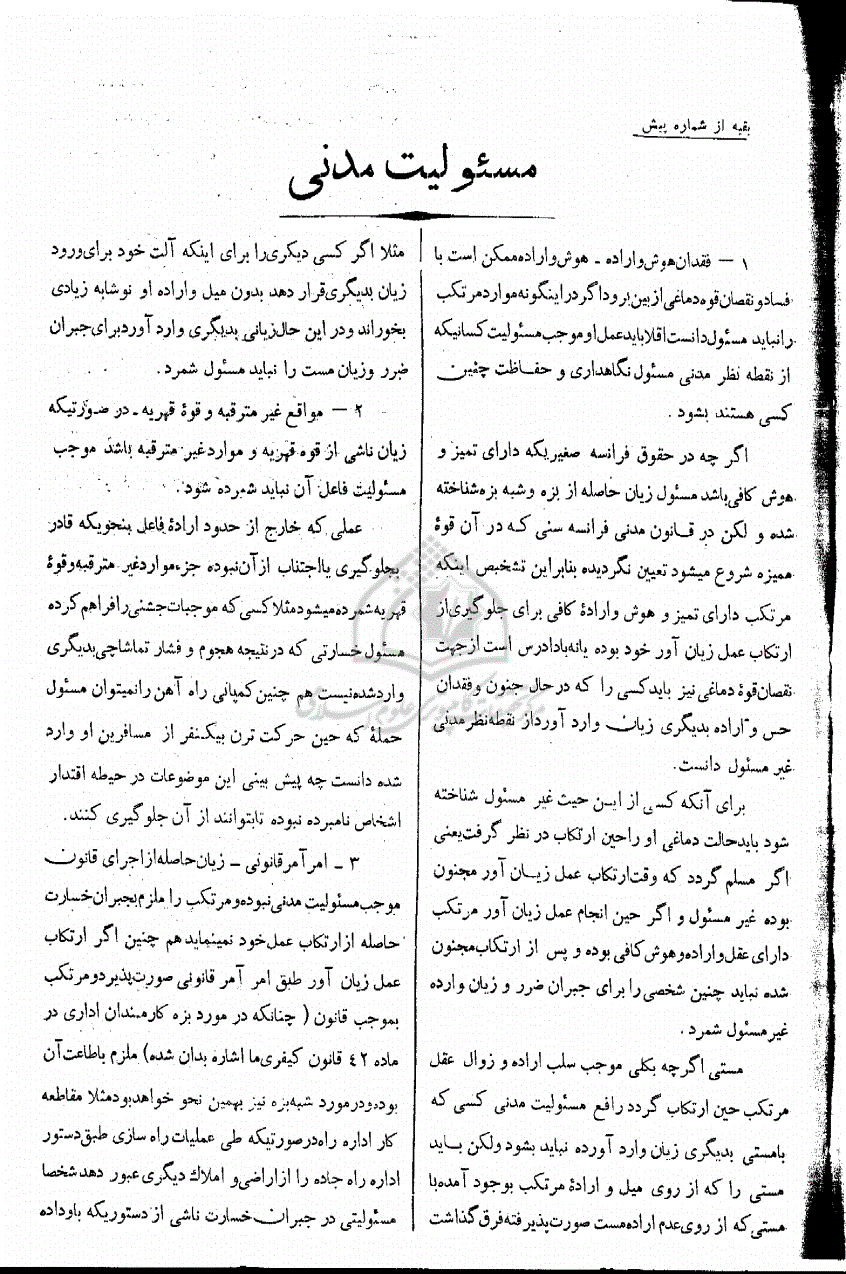 بقیه از شماره پیش
مسئولیت مدنی
۱ - فقدان هوش و اراده - هوش و اراده ممکن است با
فساد و نقصان قوه دماغی از بین برود اگر در اینگونه موارد مرتکب
را نباید مسئول دانست اقلا باید عمل او موجب مسئولیت کسانیکه
از نقطه نظر مدنی مسئول نگاهداری و حفاظت چنین
کسی هستند بشود .
اگر چه در حقوق فرانسه صغیریکه دارای تمیز و
هوش کافی باشد مسئول زیان حاصله از بزه و شبه بزه شناخته
شده و لکن در قانون مدنی فرانسه سنی که در آن قوهٔ
ممیزه شروع میشود تعیین نگردیده بنابراین تشخیص اینکه
مرتکب دارای تمیز و هوش و ارادهٔ کافی برای جلوگیری از
ارتکاب عمل زیان آور خود بوده یا نه با دادرس است از جهت
نقصان قوهٔ دماغی نیز باید کسی را که در حال جنون و فقدان
حس و اراده بدیگری زیان وارد آورد از نقطه نظر مدنی
غیر مسئول دانست.
برای آنکه کسی از این حیث غیر مسئول شناخته
شود باید حالت دماغی او را حین ارتکاب در نظر گرفت یعنی
اگر مسلم گردد که وقت ارتکاب عمل زیان آور مجنون
بوده غیر مسئول و اگر حین انجام عمل زیان آور مرتکب
دارای عقل و اراده و هوش کافی بوده و پس از ارتکاب مجنون
شده نباید چنین شخصی را برای جبران ضرر و زیان وارده
غیر مسئول شمرد .
مستی اگر چه بکلی موجب سلب اراده و زوال عقل
مرتکب حین ارتکاب گردد رافع مسئولیت مدنی کسی که
بامستی بدیگری زیان وارد آورده نباید بشود ولکن باید
مستی را که از روی میل و ارادهٔ مرتکب بوجود آمده با
مستی که از روی عدم اراده مست صورت پذیرفته فرق گذاشت
مثلا اگر کسی دیگری را برای اینکه آلت خود برای ورود
زیان بدیگری قرار دهد بدون میل و اراده او نوشابه زیادی
بخوراند و در این حال زیانی بدیگری وارد آورد برای جبران
ضرر و زیان مست را نباید مسئول شمرد .
۲ - مواقع غیر مترقبه و قوهٔ قهریه - در صورتیکه
زیان ناشی از قوه قهریه و موارد غیر مترقبه باشد موجب
مسئولیت فاعل آن نباید شمرده شود.
عملی که خارج از حدود ارادهٔ فاعل بنحویکه قادر
بجلوگیری یا اجتناب از آن نبوده جزء موارد غیر مترقبه و قوهٔ
قهریه شمرده میشود مثلا کسی که موجبات جشنی را فراهم کرده
مسئول خسارتی که در نتیجه هجوم و فشار تماشاچی بدیگری
وارد شده نیست هم چنین کمپانی راه آهن را نمیتوان مسئول
حملهٔ که حین حرکت ترن بیکنفر از مسافرین او وارد
شده دانست چه پیش بینی این موضوعات در حیطه اقتدار
اشخاص نامبرده نبوده تا بتوانند از آن جلوگیری کنند.
۳ - امر آمر قانونی - زیان حاصله از اجرای قانون
موجب مسئولیت مدنی نبوده و مرتکب را ملزم بجبران خسارت
حاصله از ارتکاب عمل خود نمینماید هم چنین اگر ارتکاب
عمل زیان آور طبق امر آمر قانونی صورت پذیرد و مرتکب
بموجب قانون ( چنانکه در مورد بزه کارمندان اداری در
ماده ٤٢ قانون کیفری ما اشاره بدان شده) ملزم باطاعت آن
بوده و در مورد شبه بزه نیز بهمین نحو خواهد بود مثلا مقاطعه
کار اداره راه در صورتیکه طی عملیات راه سازی طبق دستور
اداره راه جاده را از اراضی و املاك دیگری عبور دهد شخصا
مسئولیتی در جبران خسارت ناشی از دستوریکه باو داده